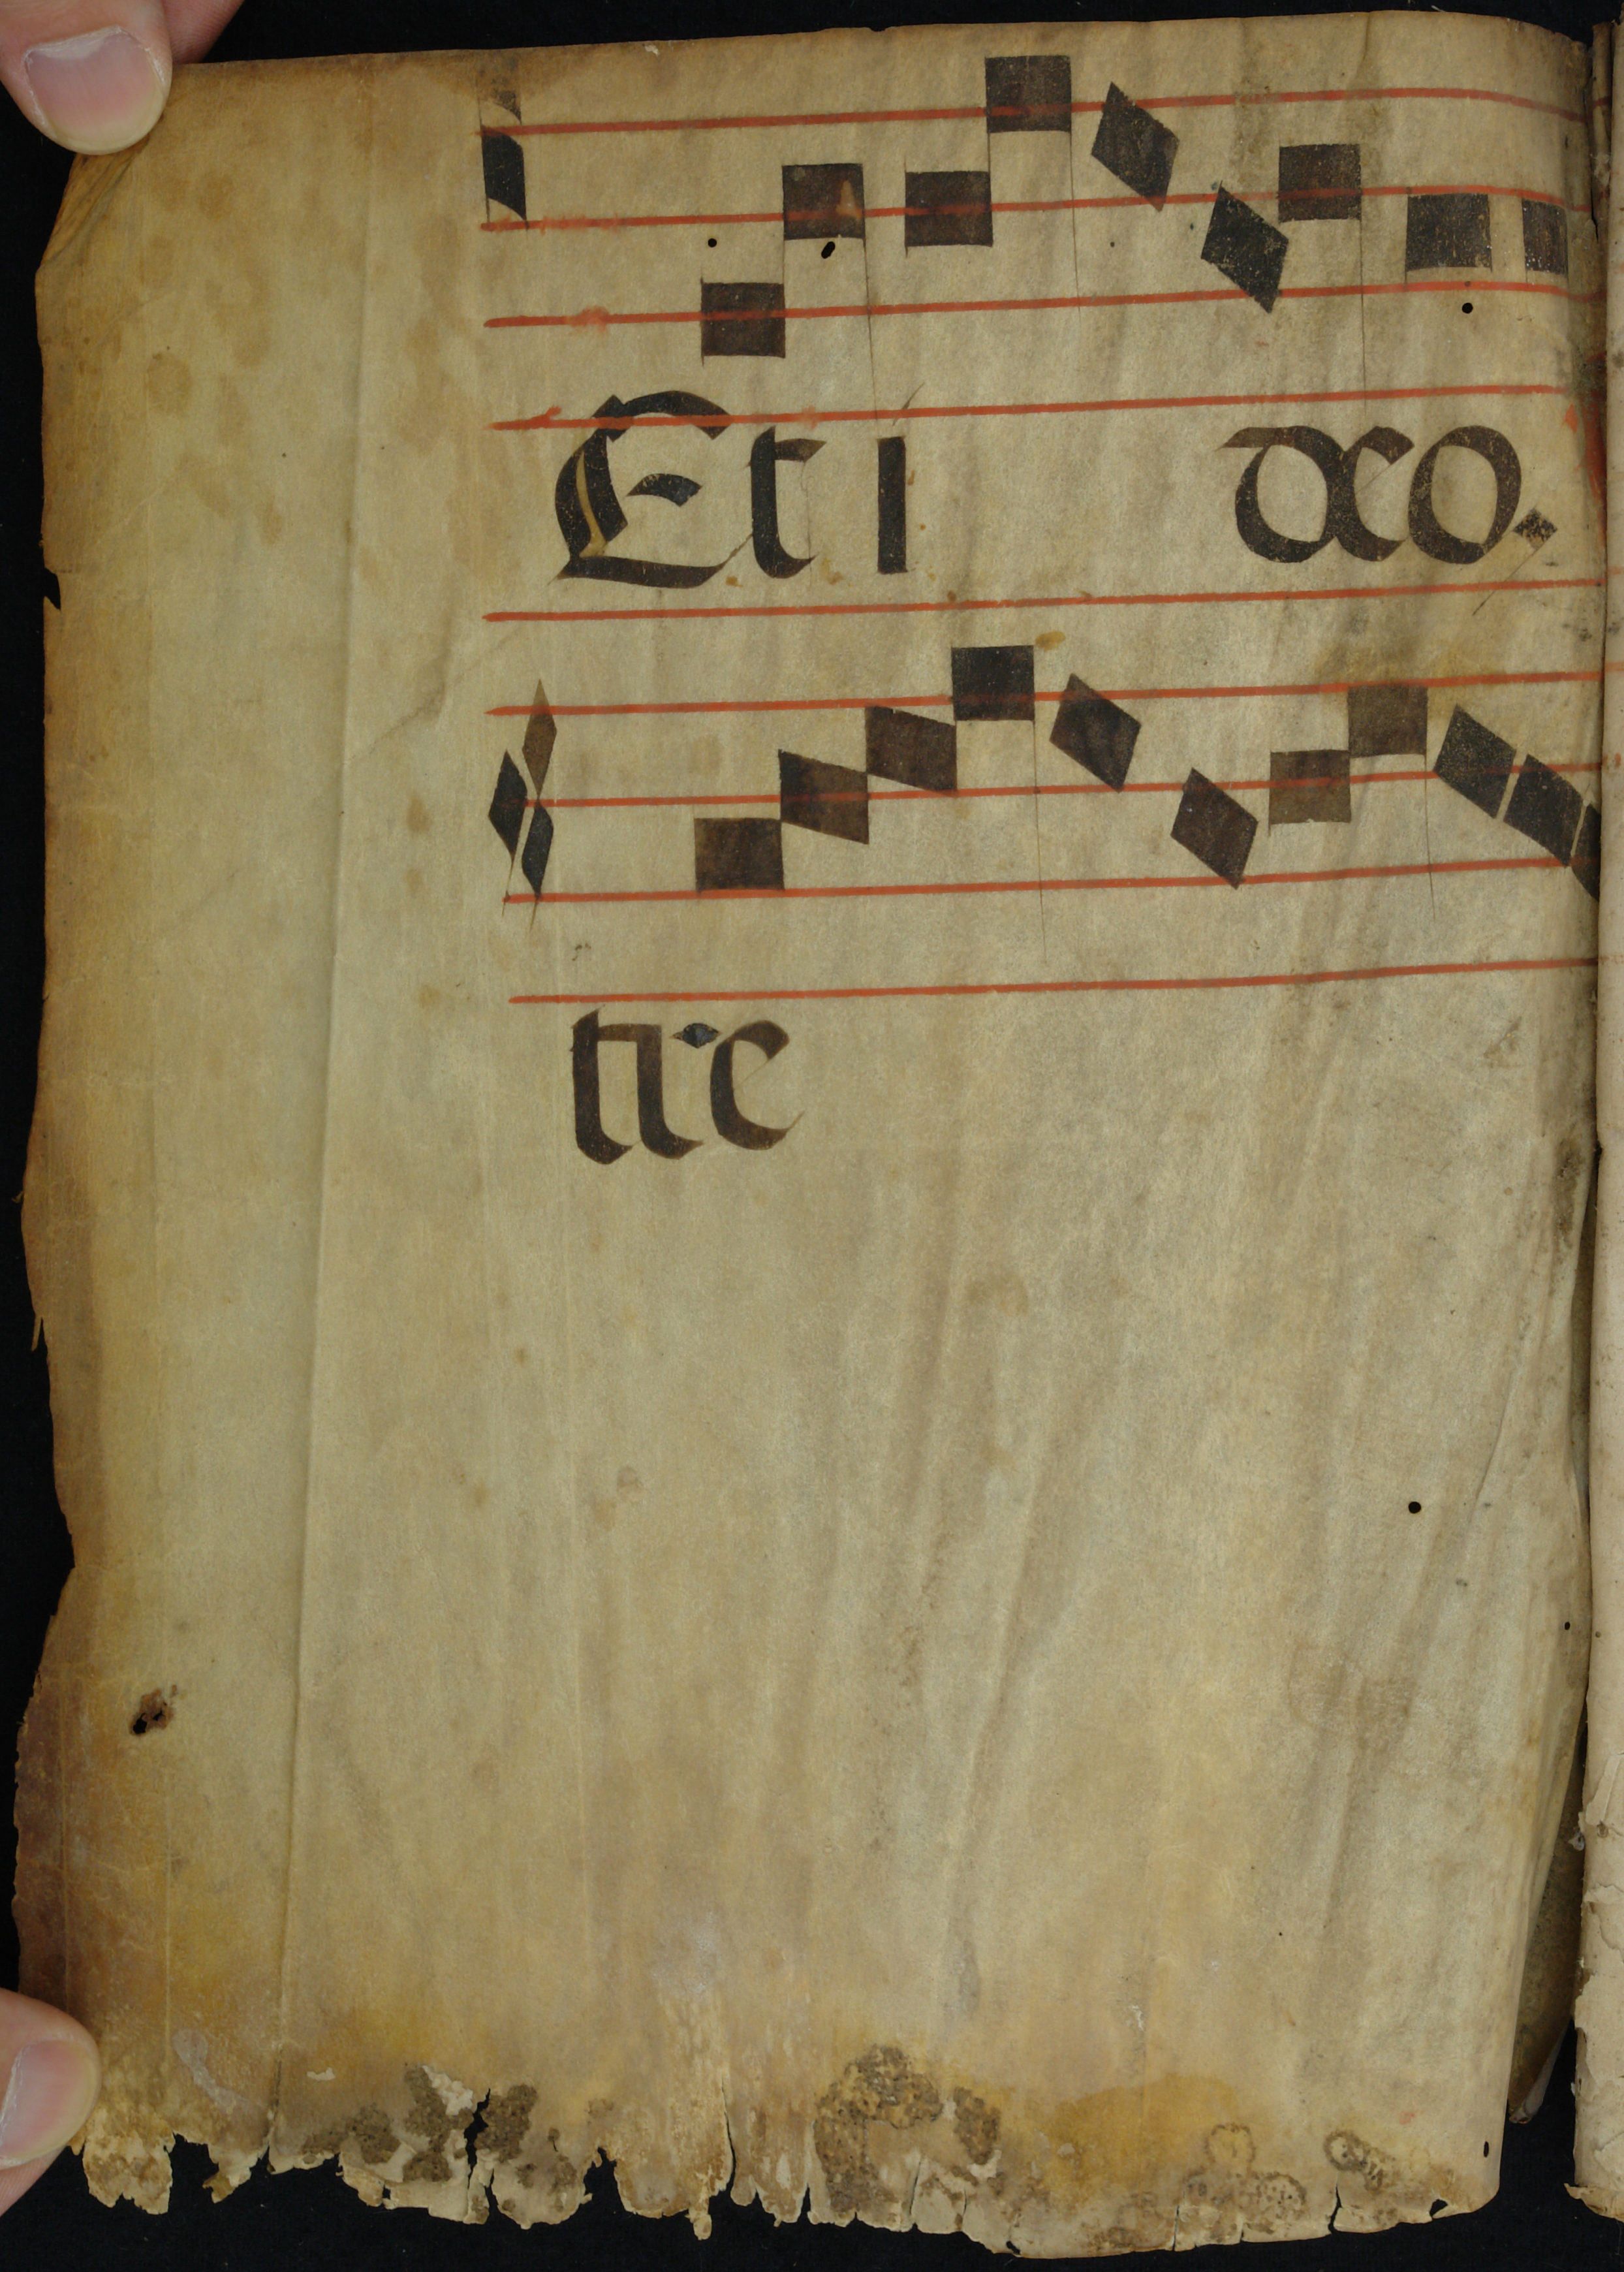 Et i deo.
tire